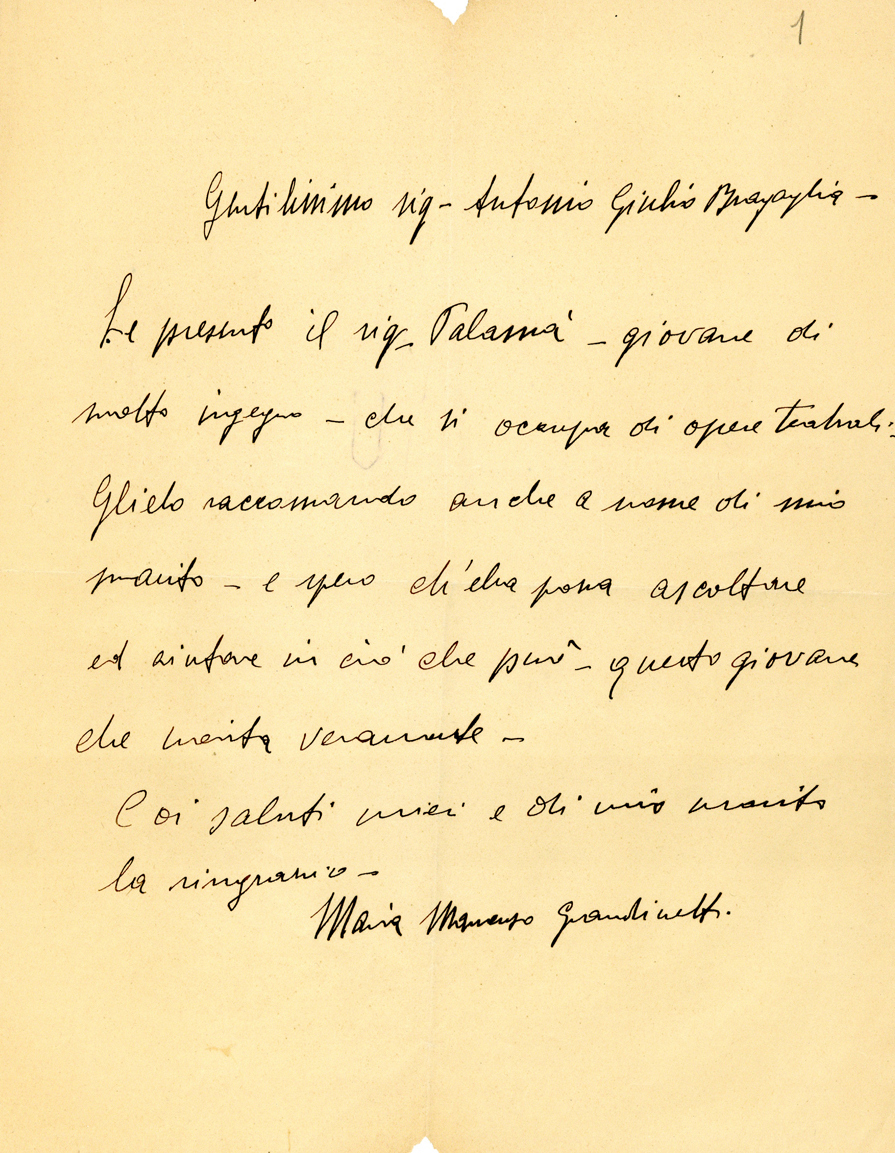 1
Gentilissimo sig - Antonio Giulio Bragaglia -
Le presento il sig. Talamà - giovane di
molto ingegno - che si occupa di opere teatrali -
Glielo raccomando anche a nome di mio
marito - e spero ch'ella possa ascoltare
ed aiutare in ciò che può - questo giovane
che merita veramente -
Coi saluti miei e di mio marito
la ringrazio -
Maria Mancuso Grandinetti.